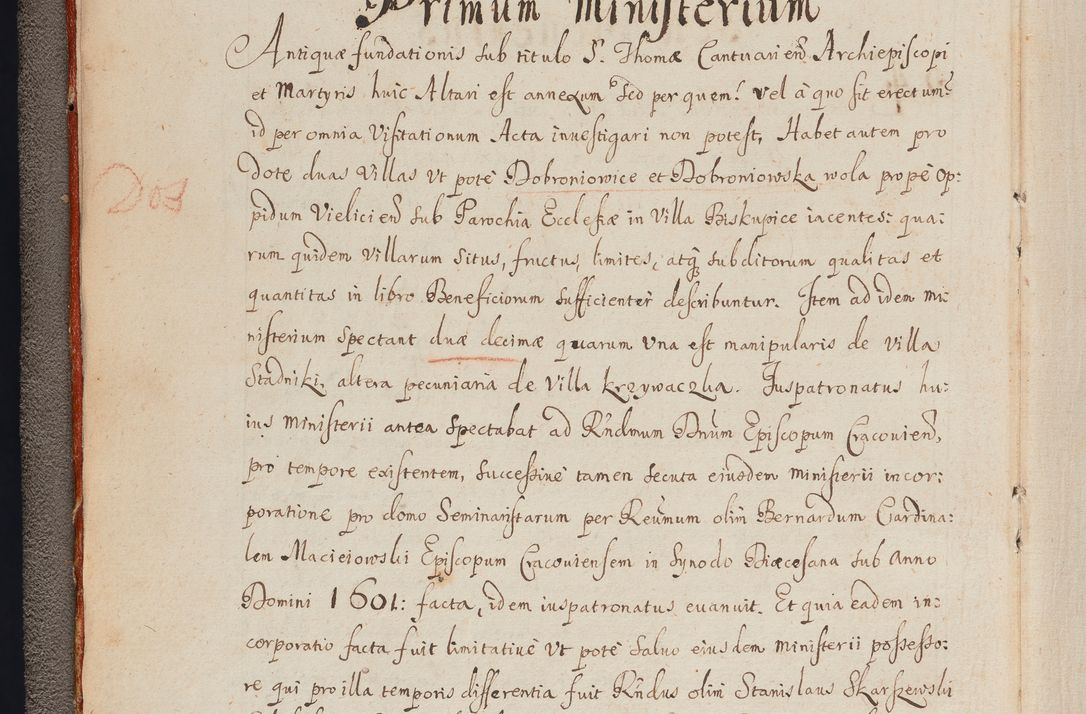 Primum Ministerium
Antiquæ fundationis sub titulo S. Thomæ Cantuarien̄ Archiepiscopi
et Martyris huic Altari est annexum sed per quem? vel à quo sit erectum?
id per omnia Visitationum Acta inuestigari non potest, Habet autem pro
Dos
Dote duas Villas ut potè Dobroniowice et Dobroniowska wola propè Op:
pidum Vielicien̄ sub Parochia Ecclesiæ in Villa Biskupice iacentes: qua:
rum quidem Villarum situs, fructus, limites, atq; subditorum qualitas et
quantitas in libro Beneficiorum sufficienter describuntur. Item ad idem mi:
nisterium spectant duæ decimæ quarum una est manipularis de Villa
Stadniki, altera pecuniaria de Villa Krzywaczka. Iuspatronatus hu:
ius Ministerii antea spectabat ad Rndmum Dnum Episcopum Cracouien̄,
pro tempore existentem, successiuè tamen secuta eiusdem Ministerii incor:
poratione pro domo Seminaristarum per Reūmum olim Bernardum Cardina:
lem Macieiowski Episcopum Cracouiensem in Synodo Diæcesana sub Anno
Domini 1601: facta, idem iuspatronatus euanuit. Et quia eadem in:
corporatio facta fuit limitatiuè ut potè saluo eiusdem Ministerii possesso:
re qui pro illa temporis differentia fuit Rndus olim Stanislaus Skarszewski